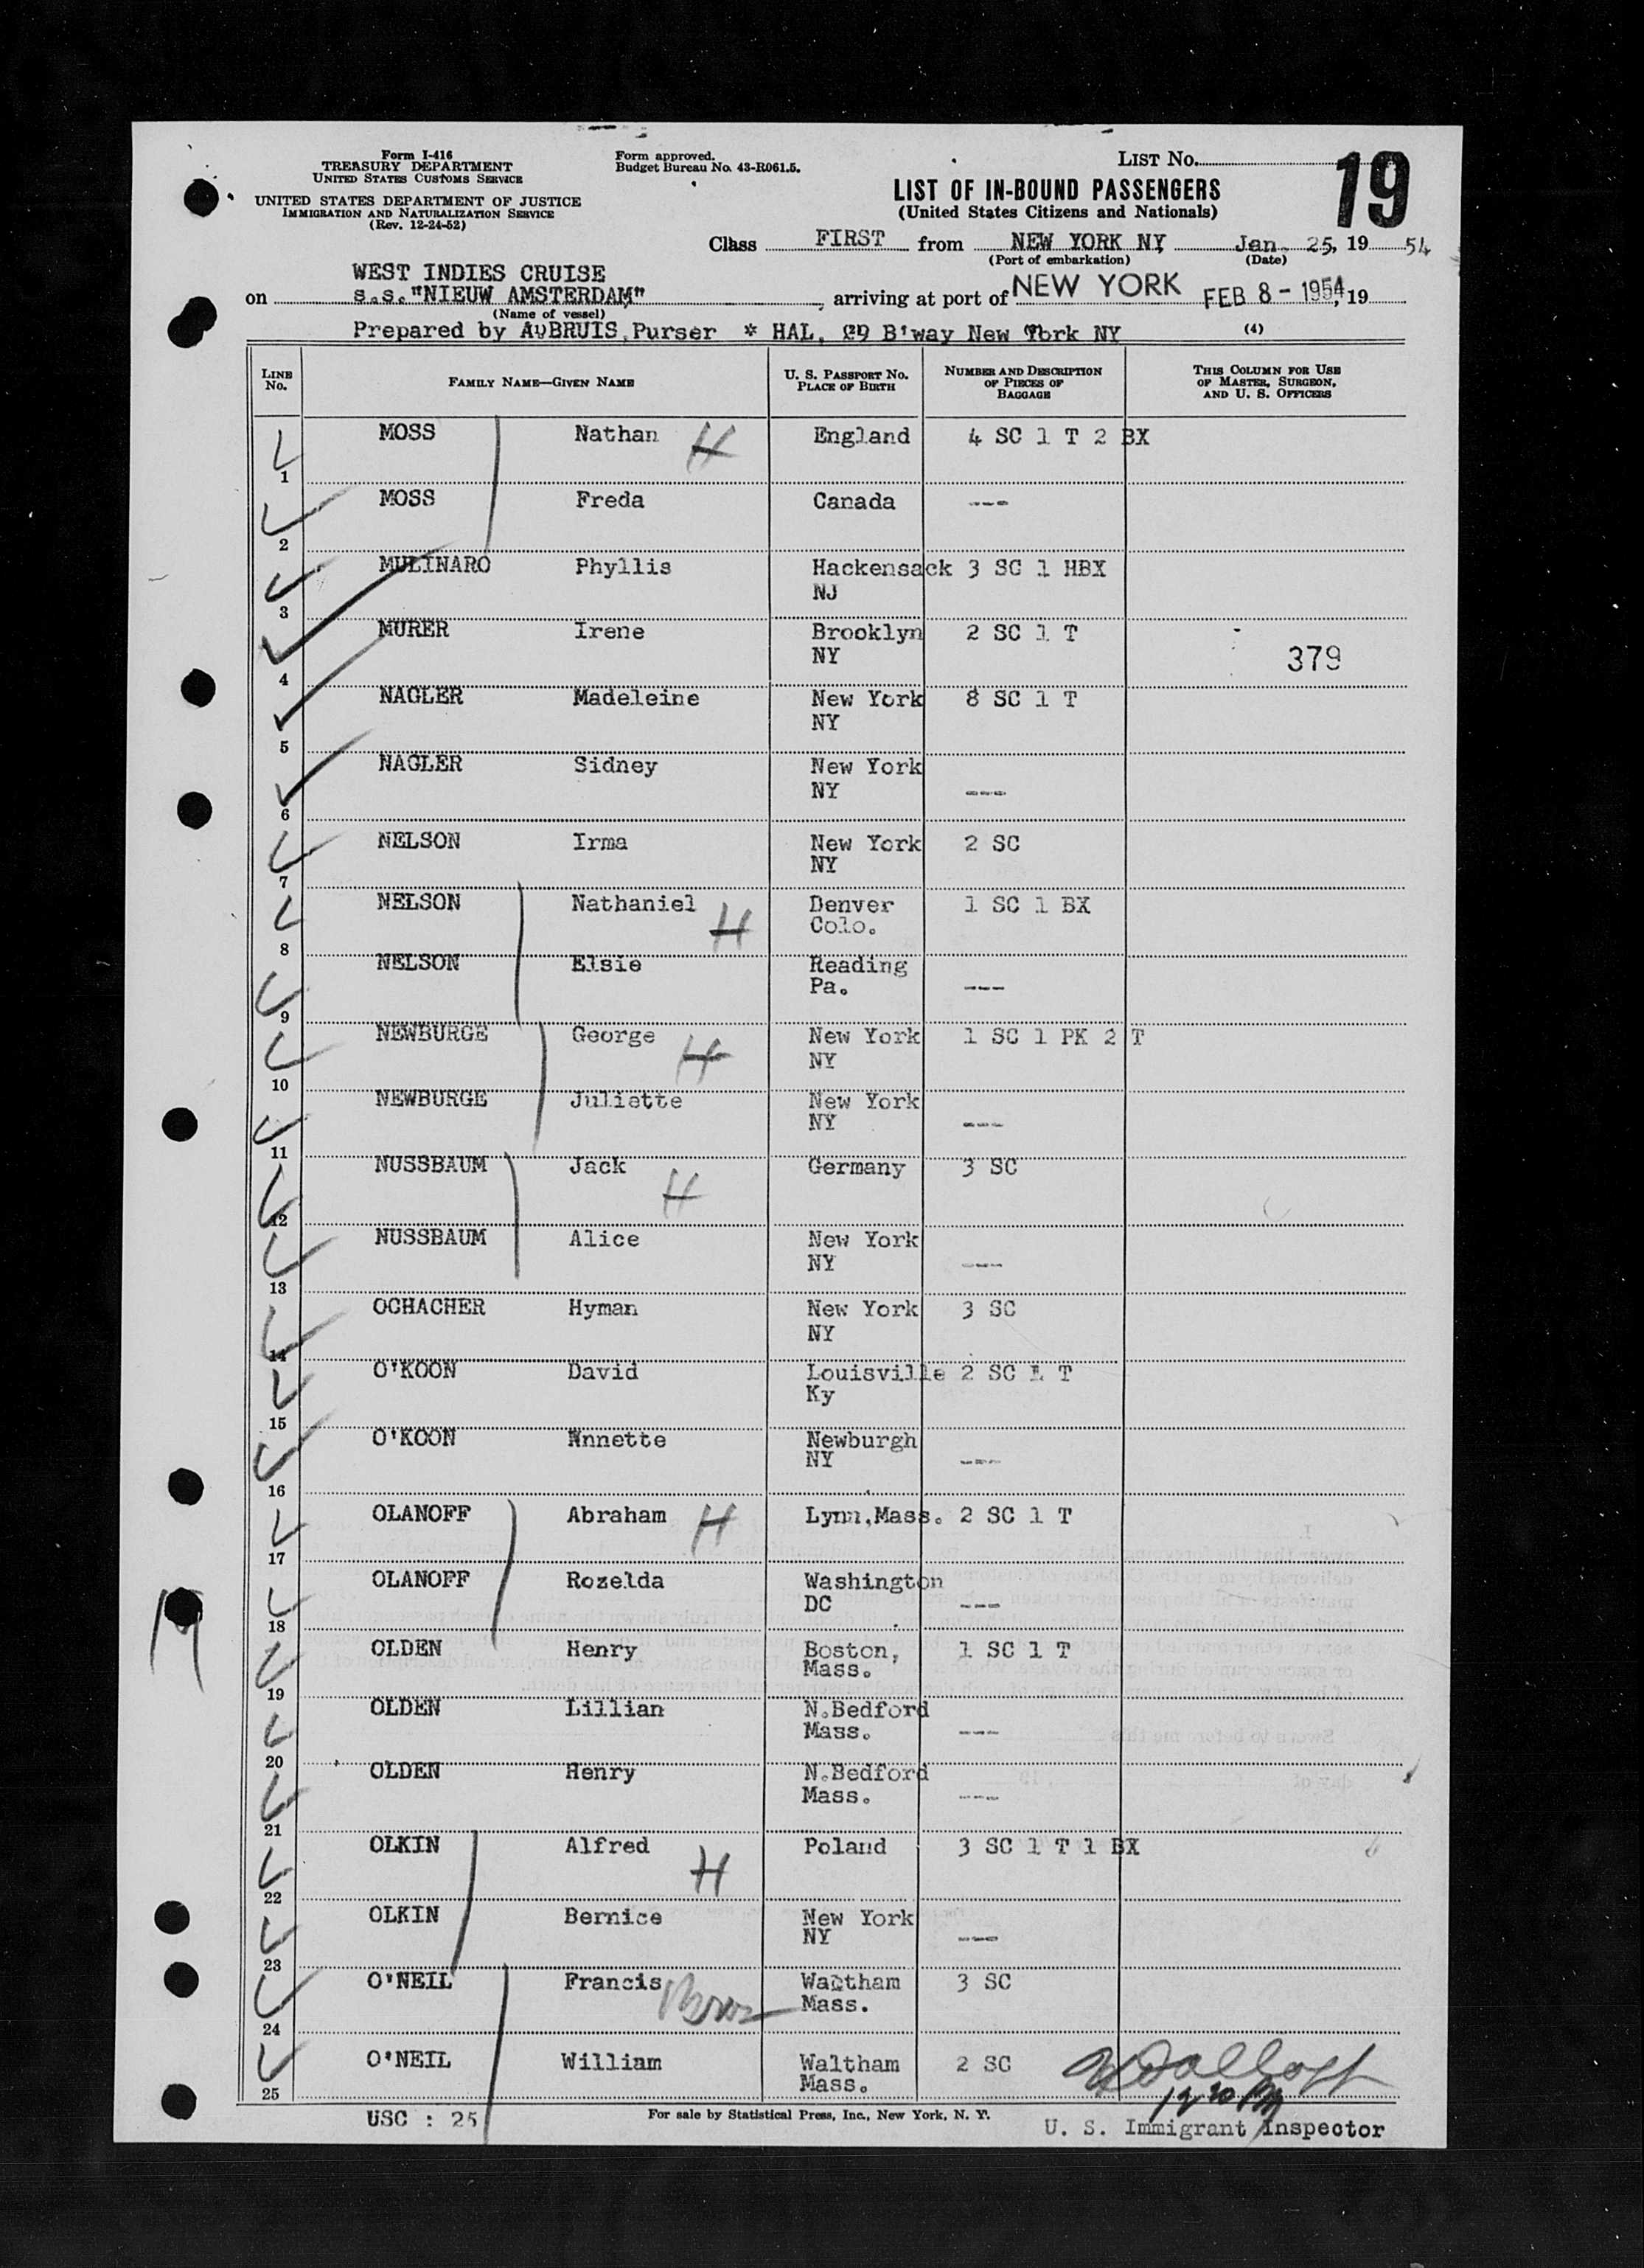 Form I-416
TREASURY DEPARTMENT
UNITED STATES CUSTOMS SERVICE
UNITED STATES DEPARTMENT OF JUSTICE
IMMIGRATION AND NATURALIZATION SERVICE
(Rev. 12-24-52)
Form approved.
Budget Bureau No. 43-R061.5.
LIST No. 19
LIST OF IN-BOUND PASSENGERS
(United States Citizens and Nationals)
Class FIRST from NEW YORK NY Jan. 25, 19 54
(Port of embarkation) (Date)
WEST INDIES CRUISE
on s.s."NIEUW AMSTERDAM", arriving at port of NEW YORK FEB 8 - 1954, 19
(Name of vessel)
Prepared by BRUIS, Purser * HAL, 29 B'way New York NY (4)
LINE No. FAMILY NAME—GIVEN NAME U. S. PASSPORT No. PLACE OF BIRTH NUMBER AND DESCRIPTION OF PIECES OF BAGGAGE THIS COLUMN FOR USE OF MASTER, SURGEON, AND U. S. OFFICERS
1 MOSS Nathan H England 4 SC 1 T 2 BX
2 MOSS Freda Canada ---
3 MULINARO Phyllis Hackensack NJ 3 SC 1 HBX
4 MURER Irene Brooklyn NY 2 SC 1 T 379
5 NAGLER Madeleine New York NY 8 SC 1 T
6 NAGLER Sidney New York NY ---
7 NELSON Irma New York NY 2 SC
8 NELSON Nathaniel H Denver Colo. 1 SC 1 BX
9 NELSON Elsie Reading Pa. ---
10 NEWBURGE George H New York NY 1 SC 1 PK 2 T
11 NEWBURGE Juliette New York NY ---
12 NUSSBAUM Jack H Germany 3 SC
13 NUSSBAUM Alice New York NY ---
14 OCHACHER Hyman New York NY 3 SC
15 O'KOON David Louisville Ky 2 SC 1 T
16 O'KOON Annette Newburgh NY ---
17 OLANOFF Abraham H Lynn,Mass. 2 SC 1 T
18 OLANOFF Rozelda Washington DC ---
19 OLDEN Henry Boston, Mass. 1 SC 1 T
20 OLDEN Lillian N.Bedford Mass. ---
21 OLDEN Henry N.Bedford Mass. ---
22 OLKIN Alfred H Poland 3 SC 1 T 1 BX
23 OLKIN Bernice New York NY ---
24 O'NEIL Francis Waltham Mass. 3 SC
25 O'NEIL William Waltham Mass. 2 SC
19
12 20 PM
USC : 25 For sale by Statistical Press, Inc., New York, N. Y. U. S. Immigrant Inspector